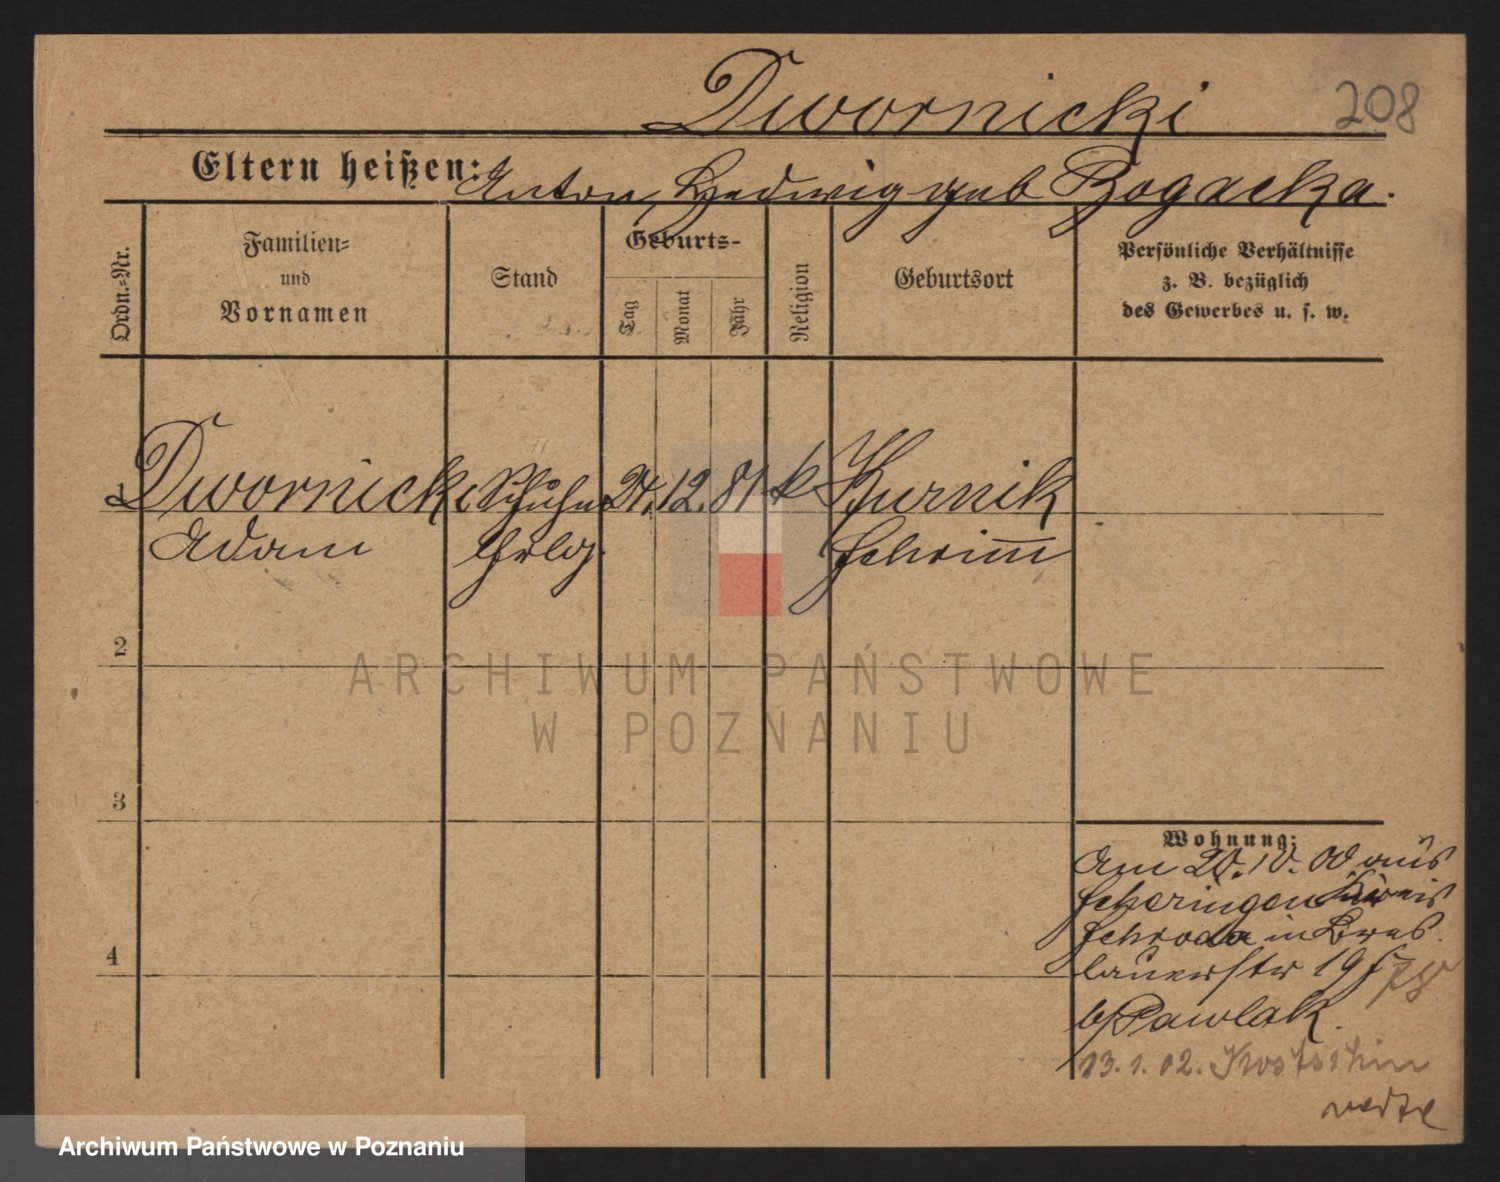 Dwornicki 208
Eltern heißen: Anton, Hedwig geb Bogacka.
Ordn.=Nr.
Familien=
und
Vornamen
Stand
Geburts-
Tag
Monat
Jahr
Religion
Geburtsort
Persönliche Verhältnisse
z. B. bezüglich
des Gewerbes u. s. w.
1 Dwornicki 24. 12. 81 k Kurnik
Adam Schrimm
2
ARCHIWUM PAŃSTWOWE
W POZNANIU
3
Wohnung:
Am 20. 10. 00 aus
Kreis
4
Schroda in Bres
lauerstr 19
b/Pawlak.
13. 1. 02. Kostschin
Archiwum Państwowe w Poznaniu